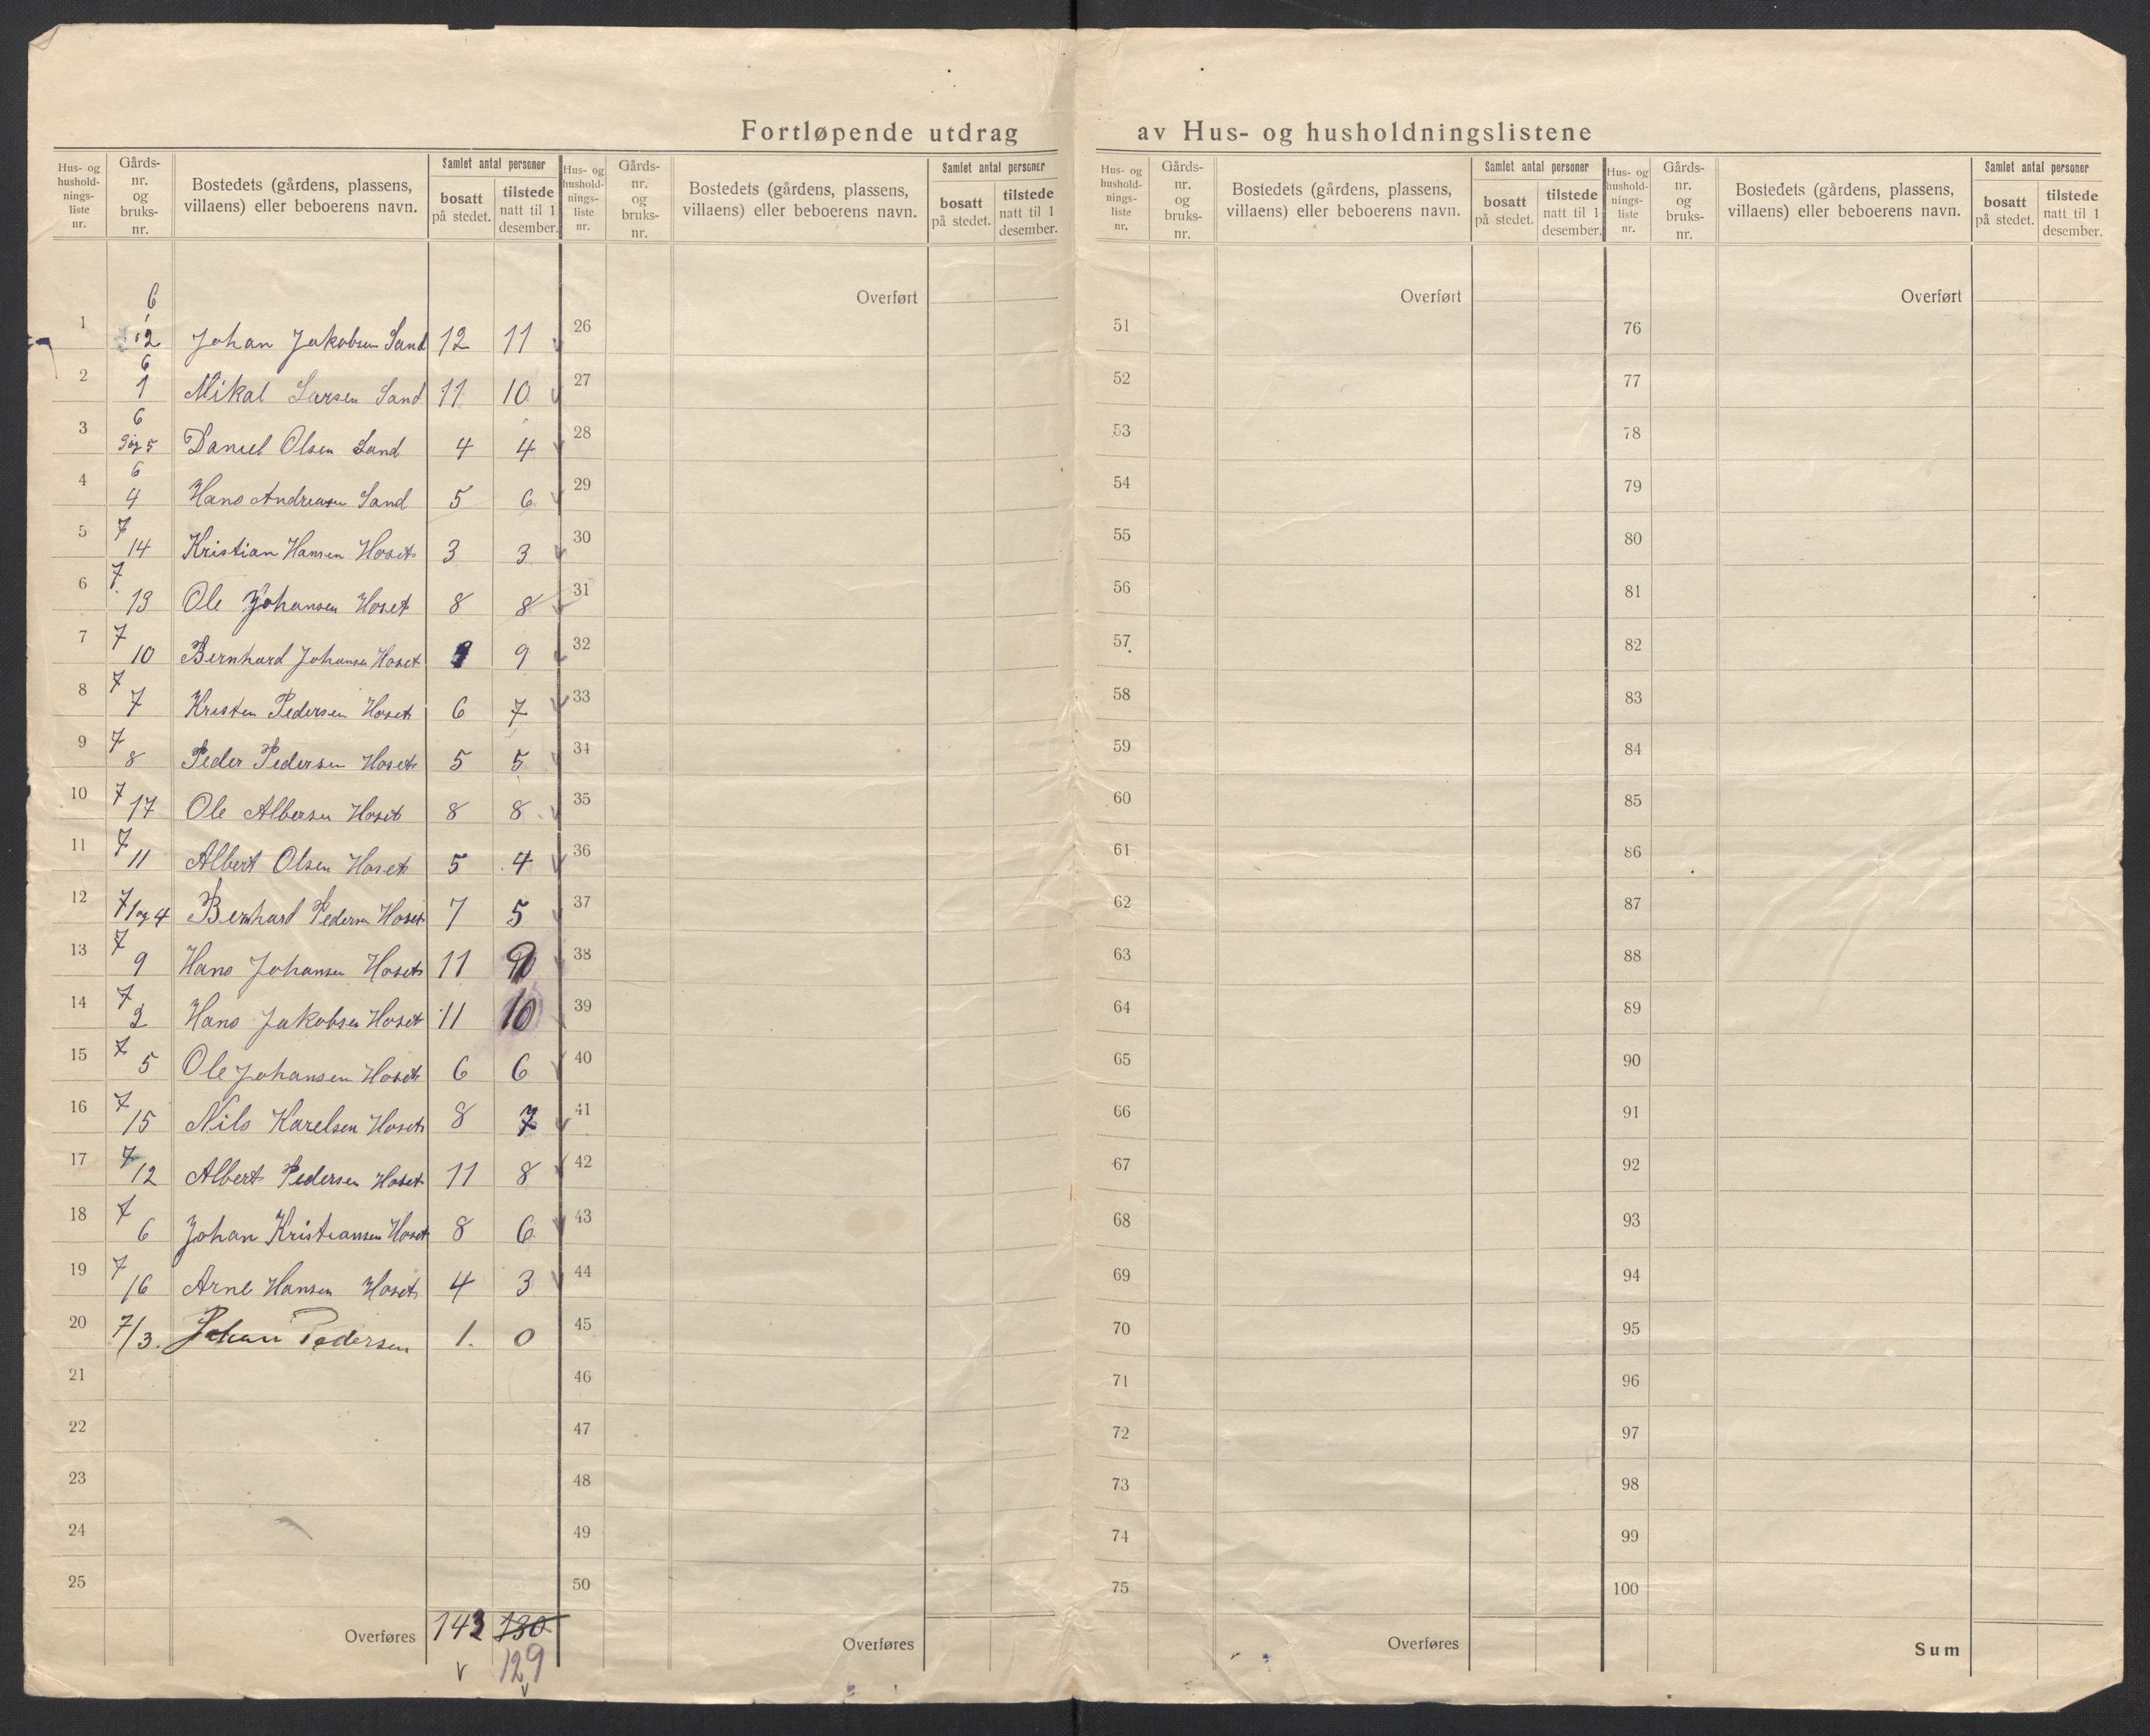 Fortløpende utdrag av Hus- og husholdningslistene
Hus- og hushold-nings-liste nr. Gårds-nr. og bruks-nr. Bostedets (gårdens, plassens, villaens) eller beboerens navn. Samlet antal personer bosatt på stedet. tilstede natt til 1 desember.
Hus- og hushold-nings-liste nr. Gårds-nr. og bruks-nr. Bostedets (gårdens, plassens, villaens) eller beboerens navn. Samlet antal personer bosatt på stedet. tilstede natt til 1 desember.
Hus- og hushold-nings-liste nr. Gårds-nr. og bruks-nr. Bostedets (gårdens, plassens, villaens) eller beboerens navn. Samlet antal personer bosatt på stedet. tilstede natt til 1 desember.
Hus- og hushold-nings-liste nr. Gårds-nr. og bruks-nr. Bostedets (gårdens, plassens, villaens) eller beboerens navn. Samlet antal personer bosatt på stedet. tilstede natt til 1 desember.
1 6 2 Johan Jakobsen Sand 12 11
2 6 1 Mikal Larsen Sand 11 10
3 6 3 og 5 Daniel Olsen Sand 4 4
4 6 4 Hans Andreasen Sand 5 6
5 7 14 Kristian Hansen Hoset 3 3
6 7 13 Ole Johansen Hoset 8 8
7 7 10 Bernhard Johansen Hoset 9 9
8 7 7 Kristen Pedersen Hoset 6 7
9 7 8 Peder Pedersen Hoset 5 5
10 7 17 Ole Albersen Hoset 8 8
11 7 11 Albert Olsen Hoset 5 4
12 7 1 og 4 Bernhard Pedersen Hoset 7 5
13 7 9 Hans Johansen Hoset 11
14 7 2 Hans Jakobsen Hoset 11 10
15 7 5 Ole Johansen Hoset 6 6
16 7 15 Nils Karelsen Hoset 8 7
17 7 12 Albert Pedersen Hoset 11 8
18 7 6 Johan Kristiansen Hoset 8 6
19 7 16 Arne Hansen Hoset 4 3
20 7/3. Johan Pedersen 1. 0
21
22
23
24
25
Overføres 143 130
129
Overført
26
27
28
29
30
31
32
33
34
35
36
37
38
39
40
41
42
43
44
45
46
47
48
49
50
Overføres
Overført
51
52
53
54
55
56
57
58
59
60
61
62
63
64
65
66
67
68
69
70
71
72
73
74
75
Overføres
Overført
76
77
78
79
80
81
82
83
84
85
86
87
88
89
90
91
92
93
94
95
96
97
98
99
100
Sum